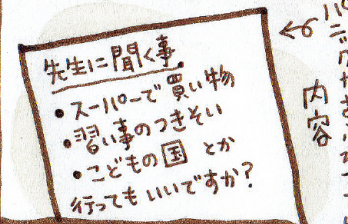 先生に聞く事
・スーパーで買い物
・習い事のつきそい
・こどもの国 とか
行ってもいいですか？
内容